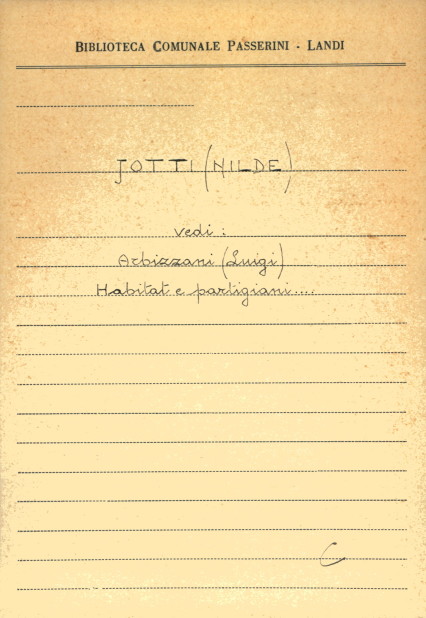 BIBLIOTECA COMUNALE PASSERINI - LANDI
JOTTI (NILDE)
vedi :
Arbizzani (Luigi)
Habitat e partigiani....
C